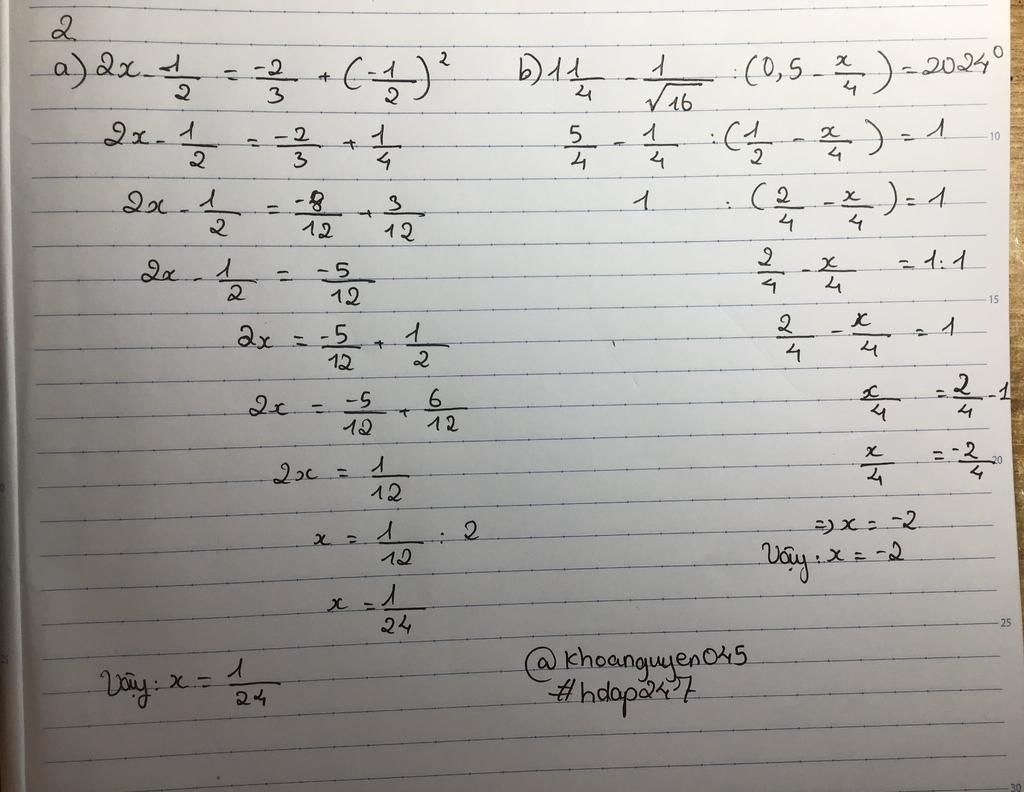 2
a) 2x - 1/2 = -2/3 + (-1/2)²
2x - 1/2 = -2/3 + 1/4
2x - 1/2 = -8/12 + 3/12
2x - 1/2 = -5/12
2x = -5/12 + 1/2
2x = -5/12 + 6/12
2x = 1/12
x = 1/12 : 2
x = 1/24
Vậy: x = 1/24
b) 1 1/4 - 1/√16 : (0,5 - x/4) = 2024⁰
5/4 - 1/4 : (1/2 - x/4) = 1
1 : (2/4 - x/4) = 1
2/4 - x/4 = 1:1
2/4 - x/4 = 1
x/4 = 2/4 - 1
x/4 = -2/4
=> x = -2
Vậy: x = -2
@khoanguyen045
#hdap247
10
15
20
25
30